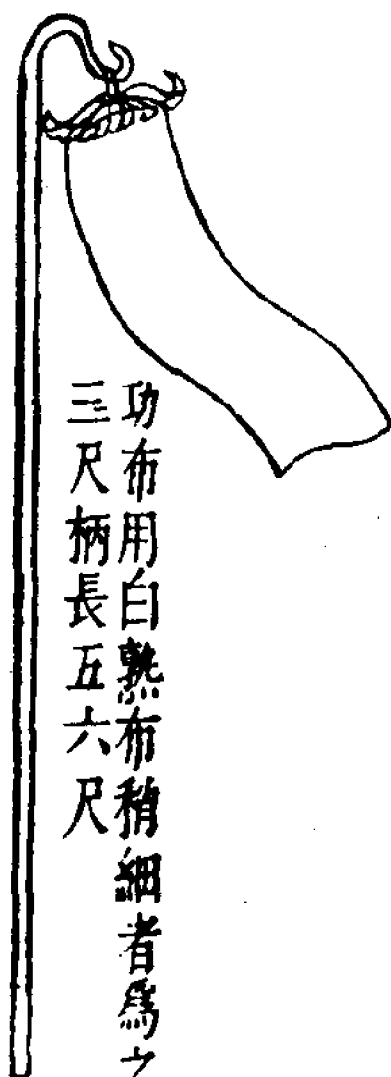 功布用白熟布稍細者爲之
三尺柄長五六尺